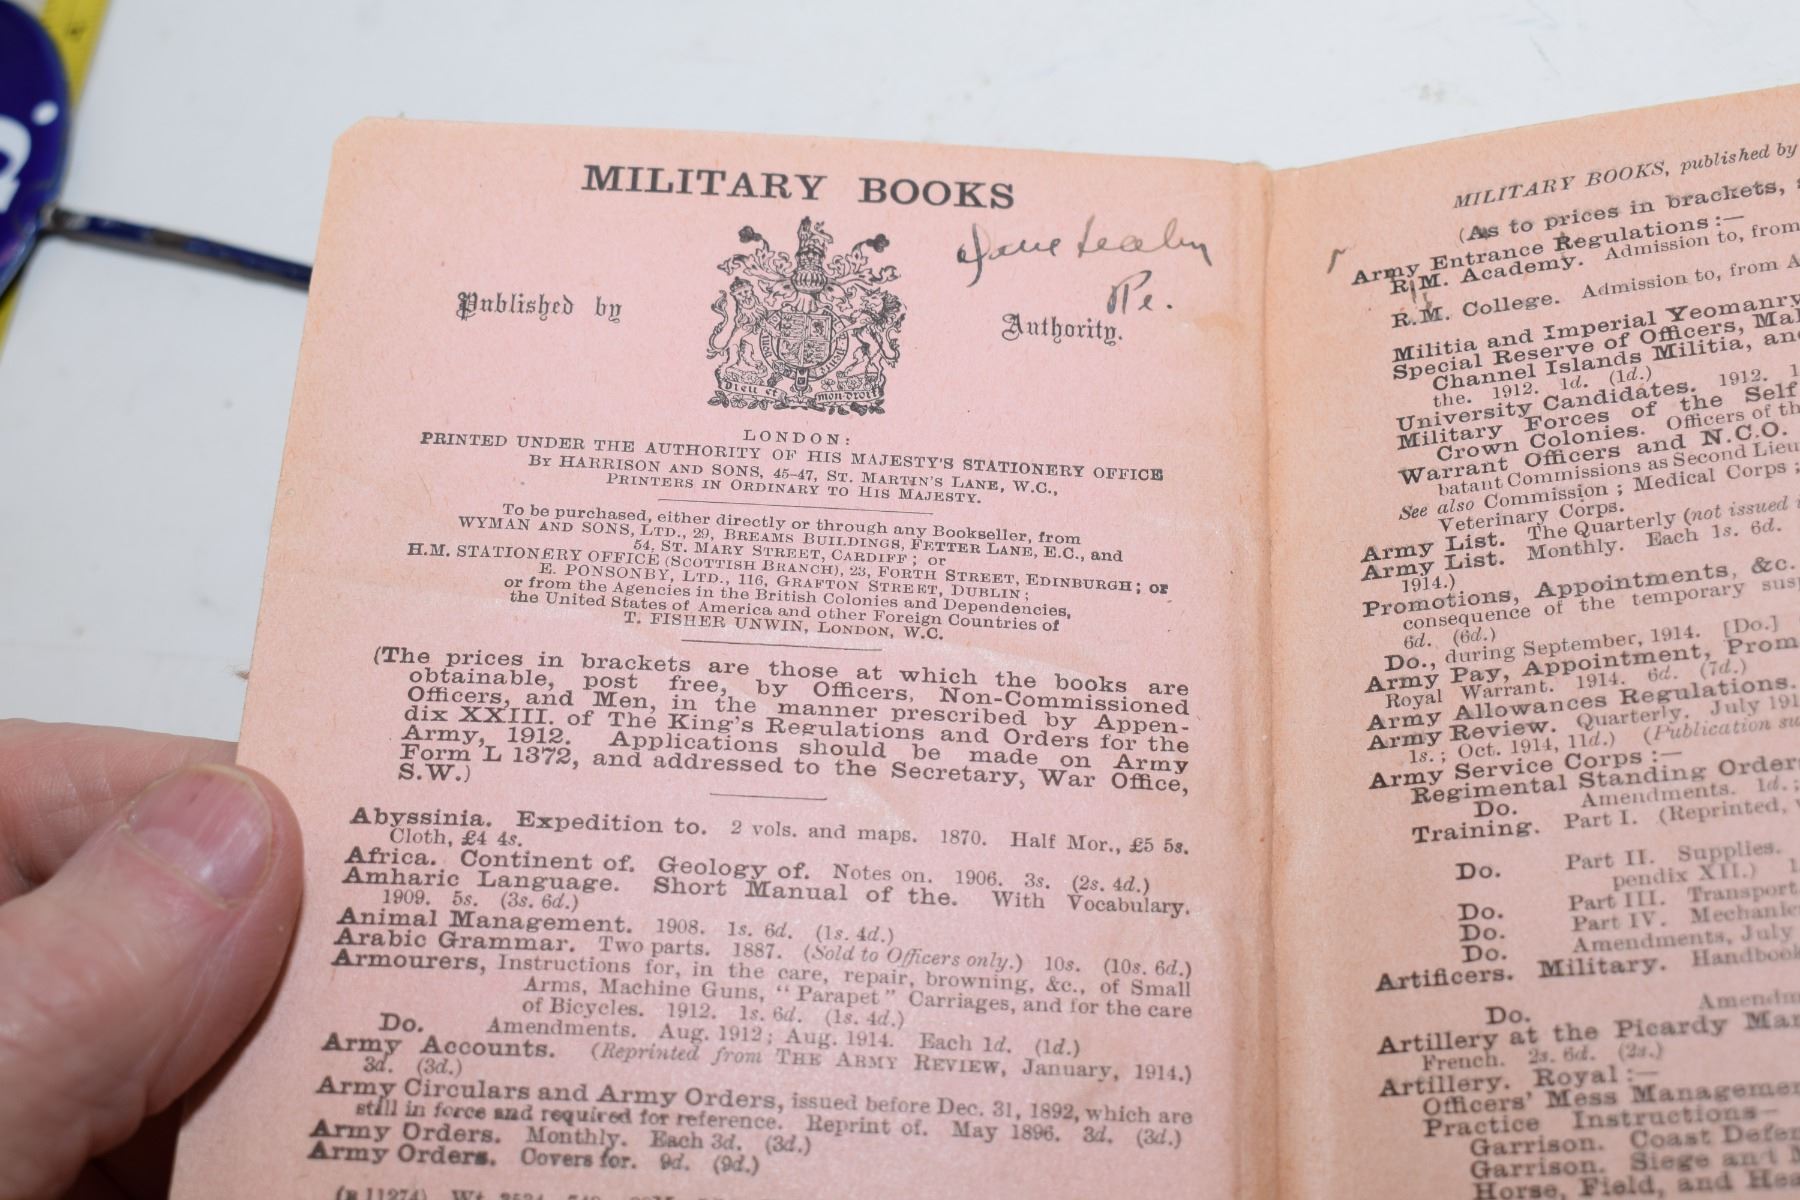 MILITARY BOOKS
Published by
Authority.
Dieu et mon droit
LONDON:
PRINTED UNDER THE AUTHORITY OF HIS MAJESTY'S STATIONERY OFFICE
By HARRISON AND SONS, 45–47, ST. MARTIN'S LANE, W.C.,
PRINTERS IN ORDINARY TO HIS MAJESTY.
To be purchased, either directly or through any Bookseller, from
WYMAN AND SONS, LTD., 29, BREAMS BUILDINGS, FETTER LANE, E.C., and
54, ST. MARY STREET, CARDIFF; or
H.M. STATIONERY OFFICE (SCOTTISH BRANCH), 23, FORTH STREET, EDINBURGH; or
E. PONSONBY, LTD., 116, GRAFTON STREET, DUBLIN;
or from the Agencies in the British Colonies and Dependencies,
the United States of America and other Foreign Countries of
T. FISHER UNWIN, LONDON, W.C.
(The prices in brackets are those at which the books are
obtainable, post free, by Officers, Non-Commissioned
Officers, and Men, in the manner prescribed by Appen-
dix XXIII. of The King's Regulations and Orders for the
Army, 1912. Applications should be made on Army
Form L 1372, and addressed to the Secretary, War Office,
S.W.)
Abyssinia. Expedition to. 2 vols. and maps. 1870. Half Mor., £5 5s.
Cloth, £4 4s.
Africa. Continent of. Geology of. Notes on. 1906. 3s. (2s. 4d.)
Amharic Language. Short Manual of the. With Vocabulary.
1909. 5s. (3s. 6d.)
Animal Management. 1908. 1s. 6d. (1s. 4d.)
Arabic Grammar. Two parts. 1887. (Sold to Officers only.) 10s. (10s. 6d.)
Armourers, Instructions for, in the care, repair, browning, &c., of Small
Arms, Machine Guns, "Parapet" Carriages, and for the care
of Bicycles. 1912. 1s. 6d. (1s. 4d.)
Do. Amendments. Aug. 1912; Aug. 1914. Each 1d. (1d.)
Army Accounts. (Reprinted from THE ARMY REVIEW, January, 1914.)
3d. (3d.)
Army Circulars and Army Orders, issued before Dec. 31, 1892, which are
still in force and required for reference. Reprint of. May 1896. 3d. (3d.)
Army Orders. Monthly. Each 3d. (3d.)
Army Orders. Covers for. 9d. (9d.)
MILITARY BOOKS, published by
(As to prices in brackets,
Army Entrance Regulations:—
R.M. Academy. Admission to, from
R.M. College. Admission to, from A
Militia and Imperial Yeomanry
Special Reserve of Officers, Mal
Channel Islands Militia, and
the. 1912. 1d. (1d.)
University Candidates. 1912. 1
Military Forces of the Self
Crown Colonies. Officers of th
Warrant Officers and N.C.O.
batant Commissions as Second Lieu
See also Commission; Medical Corps;
Veterinary Corps.
Army List. The Quarterly (not issued i
Army List. Monthly. Each 1s. 6d.
1914.)
Promotions, Appointments, &c.
consequence of the temporary susp
6d. (6d.)
Do., during September, 1914. [Do.]
Army Pay, Appointment, Prom
Royal Warrant. 1914. 6d. (7d.)
Army Allowances Regulations.
Army Review. Quarterly. July 191
1s.; Oct. 1914, 11d.) (Publication su
Army Service Corps:—
Regimental Standing Orders
Do. Amendments. 1d.;
Training. Part I. (Reprinted,
Do. Part II. Supplies.
pendix XII.) 1
Do. Part III. Transport.
Do. Part IV. Mechanic
Do. Amendments, July
Artificers. Military. Handbook
Do. Amendm
Artillery at the Picardy Man
French. 2s. 6d. (2s.)
Artillery. Royal:—
Officers' Mess Manageme
Practice Instructions—
Garrison. Coast Defen
Garrison. Siege and M
Horse, Field, and Hea